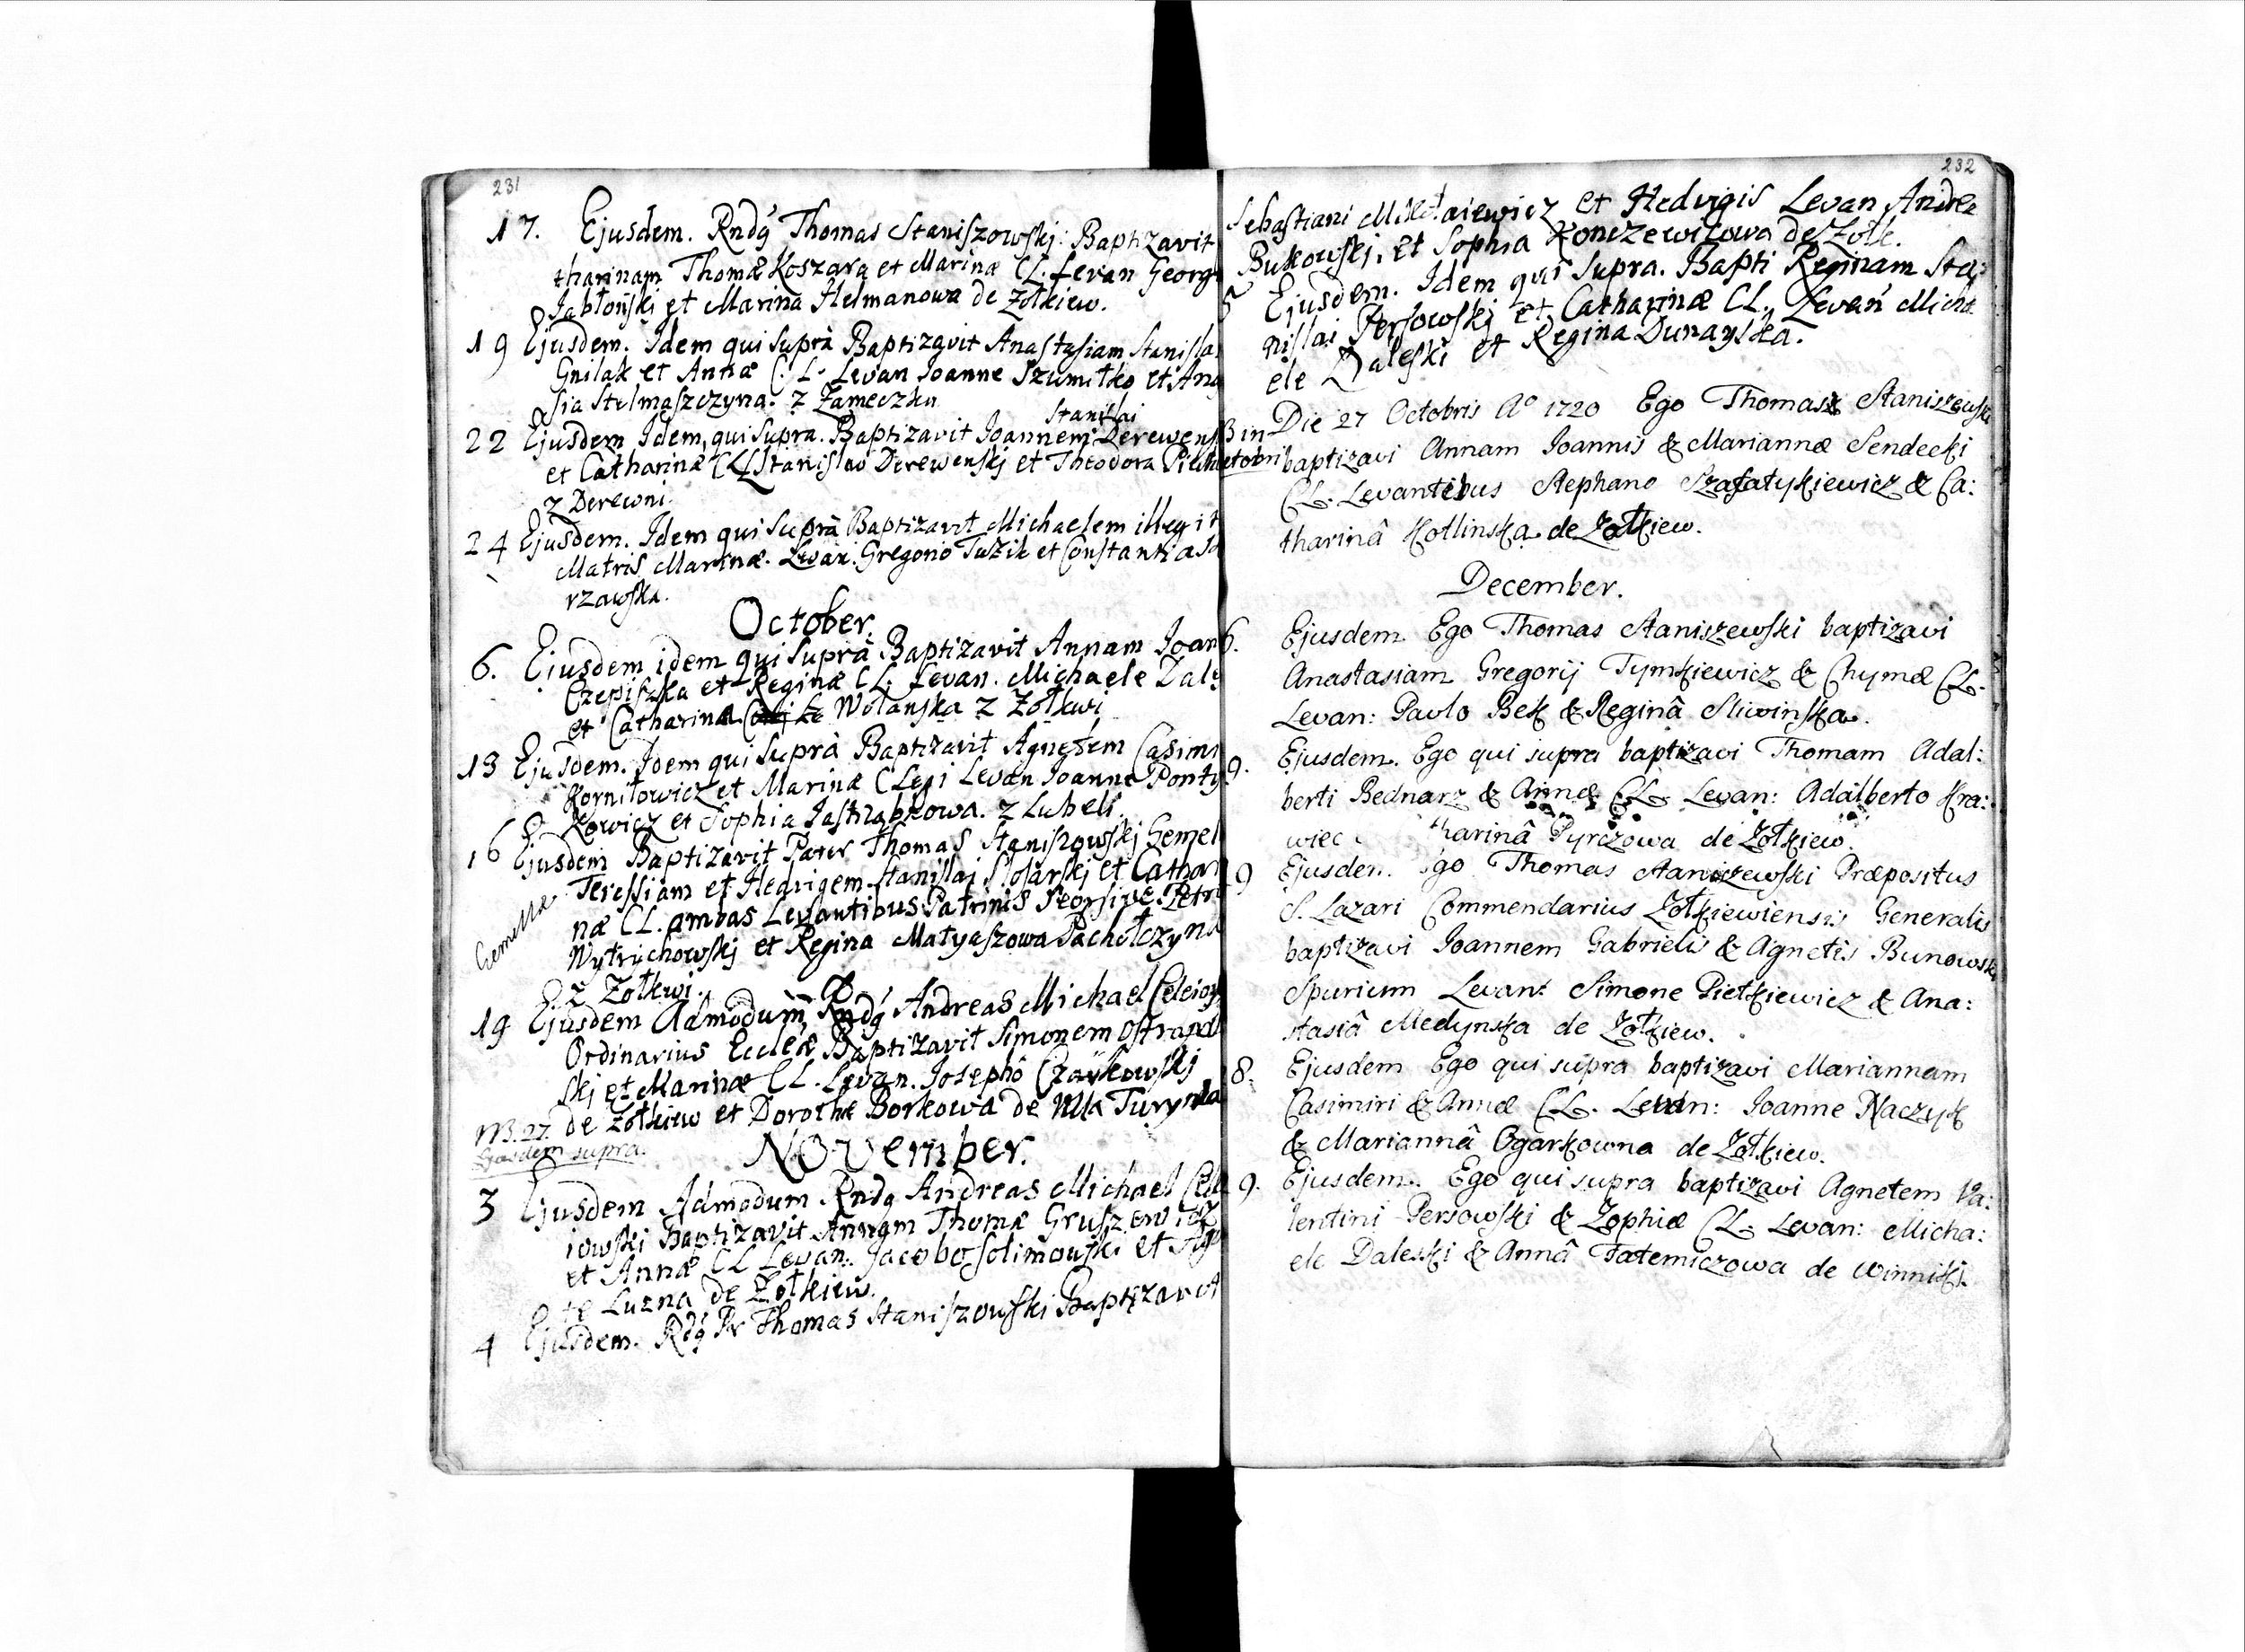 231
17. Ejusdem. Rndq Thomas Staniszowskj: Baptizavit
tharinam Thomæ Koszara et Marinæ CL. Levan Georg
Jabłoński et Marina Helmanowa de Zołkiew.
19 Ejusdem. Idem qui Suprà Baptizavit Anastasiam Stanisla
Gnilak et Annæ C. L. Levan Joanne Szumitko et Ana
sia Stelmaszczyna. z Zameczku
Stanislai
22 Ejusdem Idem qui Supra. Baptizavit Joannem Derewens
et Catharinæ CLL Stanislao Derewenskj et Theodora
z Derewni.
24 Ejusdem. Idem qui Suprà Baptizavit Michaelem illegit
Matris Marinæ. Levan. Gregorio Tuzik et Constantia
rzawska.
October.
6. Ejusdem idem qui Suprà Baptizavit Annam Joan
Czepiszka et Reginæ CL. Levan. Michaele Zale
et Catharina Wolanska z Zołkwi
13 Ejusdem. Idem qui Suprà Baptizavit Agnetem Casimi
Kornilowicz et Marinæ C Legi Levan Joanne Ponty
kowicz et Sophia Jastrzabkowa. z Lubeli.
16 Ejusdem Baptizavit Pater Thomas Staniszowskj Gemel
Gemellæ Teressiam et Hedvigem Stanislaj Slosarskj et Cathari
næ CL. ambas Levantibus Patrinis Seorsive Petro
Wytrychowskj et Regina Matyaszowa Pachołczyna
z Zołkwi.
19 Ejusdem Admodum Rndq Andreas Michael Celeio
Ordinarius Eccleæ Baptizavit Simonem Ostrows
skj et Marinæ CL. Levan. Josephô Czaykowskj
de Zołkiew et Dorothe Borkowa de Villa Turynka
NB. 27.
Ejusdem supra.
November.
3 Ejusdem Admodum Rndq Andreas Michael Cele
iowski Baptizavit Annam Thomæ Gruszewicz
et Annæ CL Levan. Jacobo Solimowski et Agne
te Luzna de Zołkiew.
4 Ejusdem. Rdq Pr Thomas Staniszowski Baptizavit
232
Sebastiani Mikołaiewicz et Hedvigis Levan Andrea
Bukowskj. et Sophia Konczewiczowa de Zołk.
5 Ejusdem. Idem qui Supra. Bapti Reginam Sta:
nislai Persowskj et Catharinæ CL. Levan Micha
ele Daleski et Regina Dunayska.
Die 27 Octobris Ao 1720 Ego Thomas Staniszewski
baptizavi Annam Joannis & Mariannæ Sendecki
CL. Levantibus Stephano Szafatykiewicz & Ca:
tharinâ Kotlinska de Zołkiew.
December.
6. Ejusdem Ego Thomas Staniszewski baptizavi
Anastasiam Gregorij Tymkiewicz & Chymæ CL.
Levan: Paulo Bek & Reginâ Sliwinska.
9. Ejusdem. Ego qui supra baptizavi Thomam Adal:
berti Bednarz & Annæ CL. Levan: Adalberto Kra:
wiec tharinâ Pyrczowa de Zołkiew.
9 Ejusdem Ego Thomas Staniszewski Præpositus
S. Lazari Commendarius Zołkiewiensis Generalis
baptizavi Joannem Gabrielis & Agnetis Bunowski
Spurium Levant Simone Pietkiewicz & Ana:
stasiâ Medynska de Zołkiew.
8. Ejusdem Ego qui supra baptizavi Mariannam
Casimiri & Annæ CL. Levan: Joanne Naczyk
& Mariannâ Ogarkowna de Zołkiew.
9. Ejusdem. Ego qui supra baptizavi Agnetem Va:
lentini Persowski & Zophiæ CL. Levan: Micha:
ele Daleski & Annâ Tatemiczowa de Winniki.